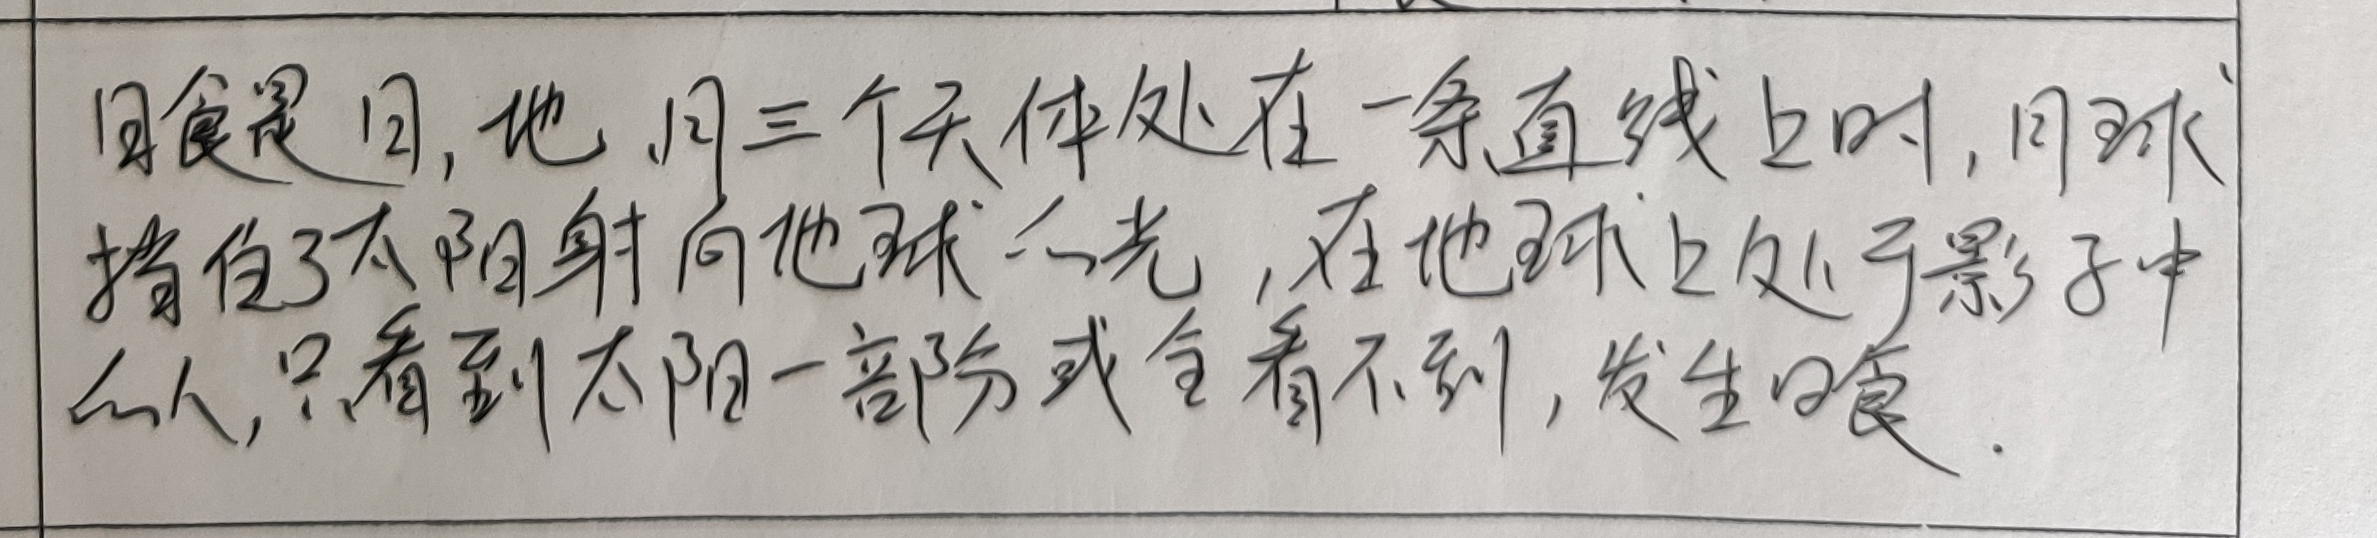 日食是日,地,月三个天体处在一条直线上时,月球
挡住了太阳射向地球的光,在地球上处于影子中
的人,只看到太阳一部分或全看不到,发生日食.